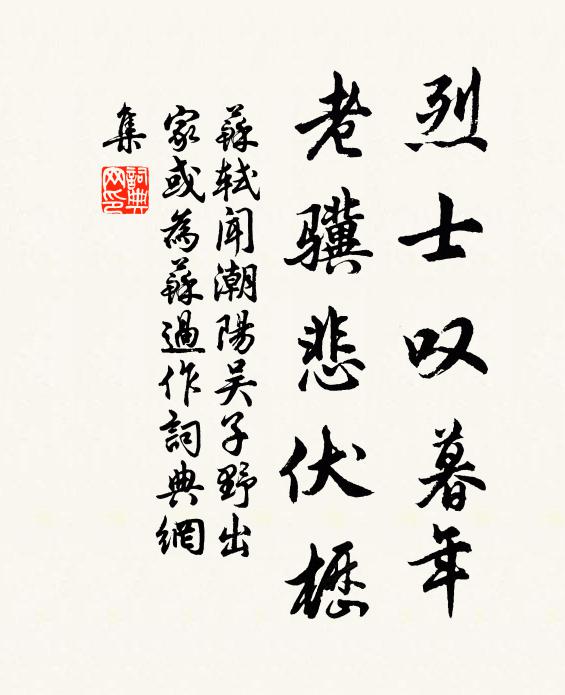 烈士叹暮年
老骥悲伏櫪
蘇軾闻潮陽吴子野出
家或為蘇過作詞典網
集
詞典网印